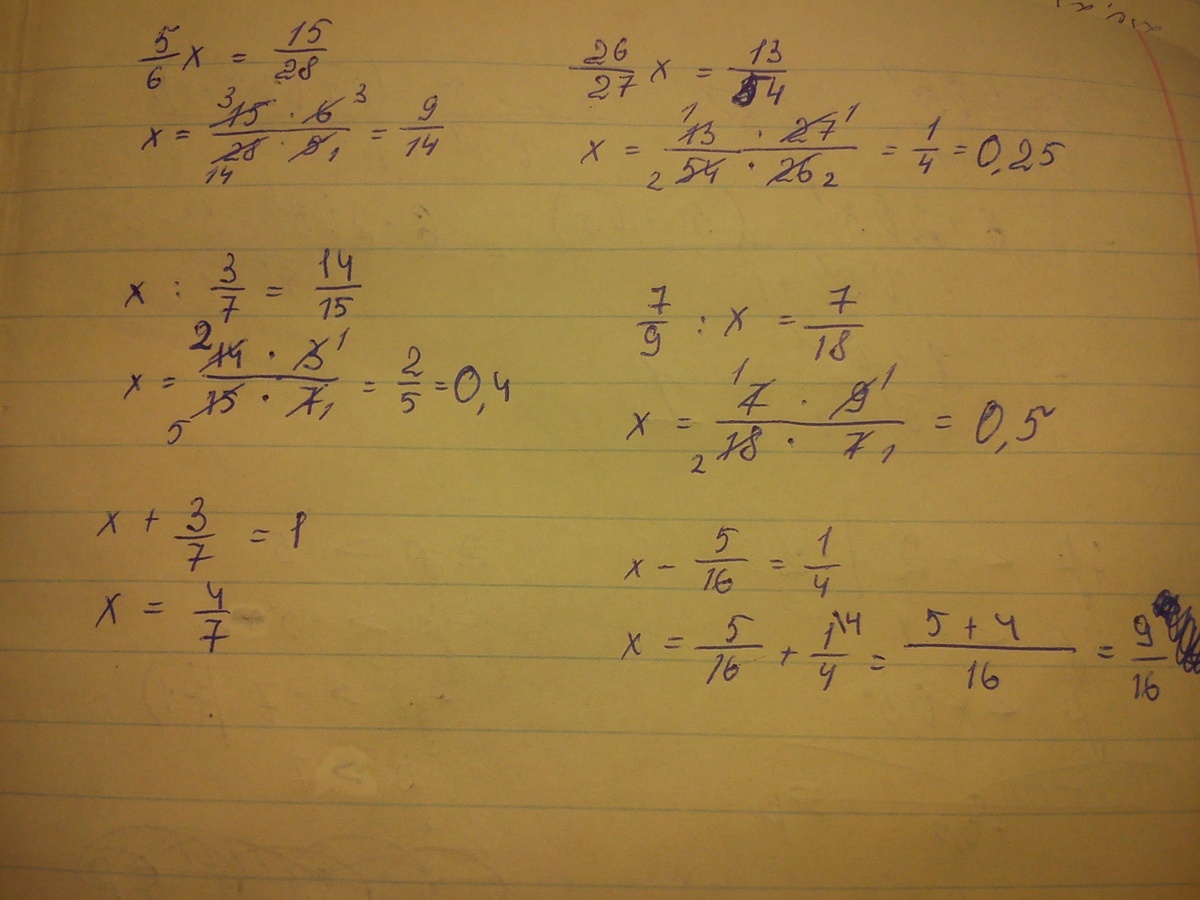 5/6 x = 15/28
x = (³15 · 6³)/(₁₄28 · 5₁) = 9/14
26/27 x = 13/54
x = (¹13 · 27¹)/(₂54 · 26₂) = 1/4 = 0,25
x : 3/7 = 14/15
x = (²14 · 3¹)/(₅15 · 7₁) = 2/5 = 0,4
7/9 : x = 7/18
x = (¹7 · 9¹)/(₂18 · 7₁) = 0,5
x + 3/7 = 1
x = 4/7
x - 5/16 = 1/4
x = 5/16 + 1\⁴/4 = (5 + 4)/16 = 9/16